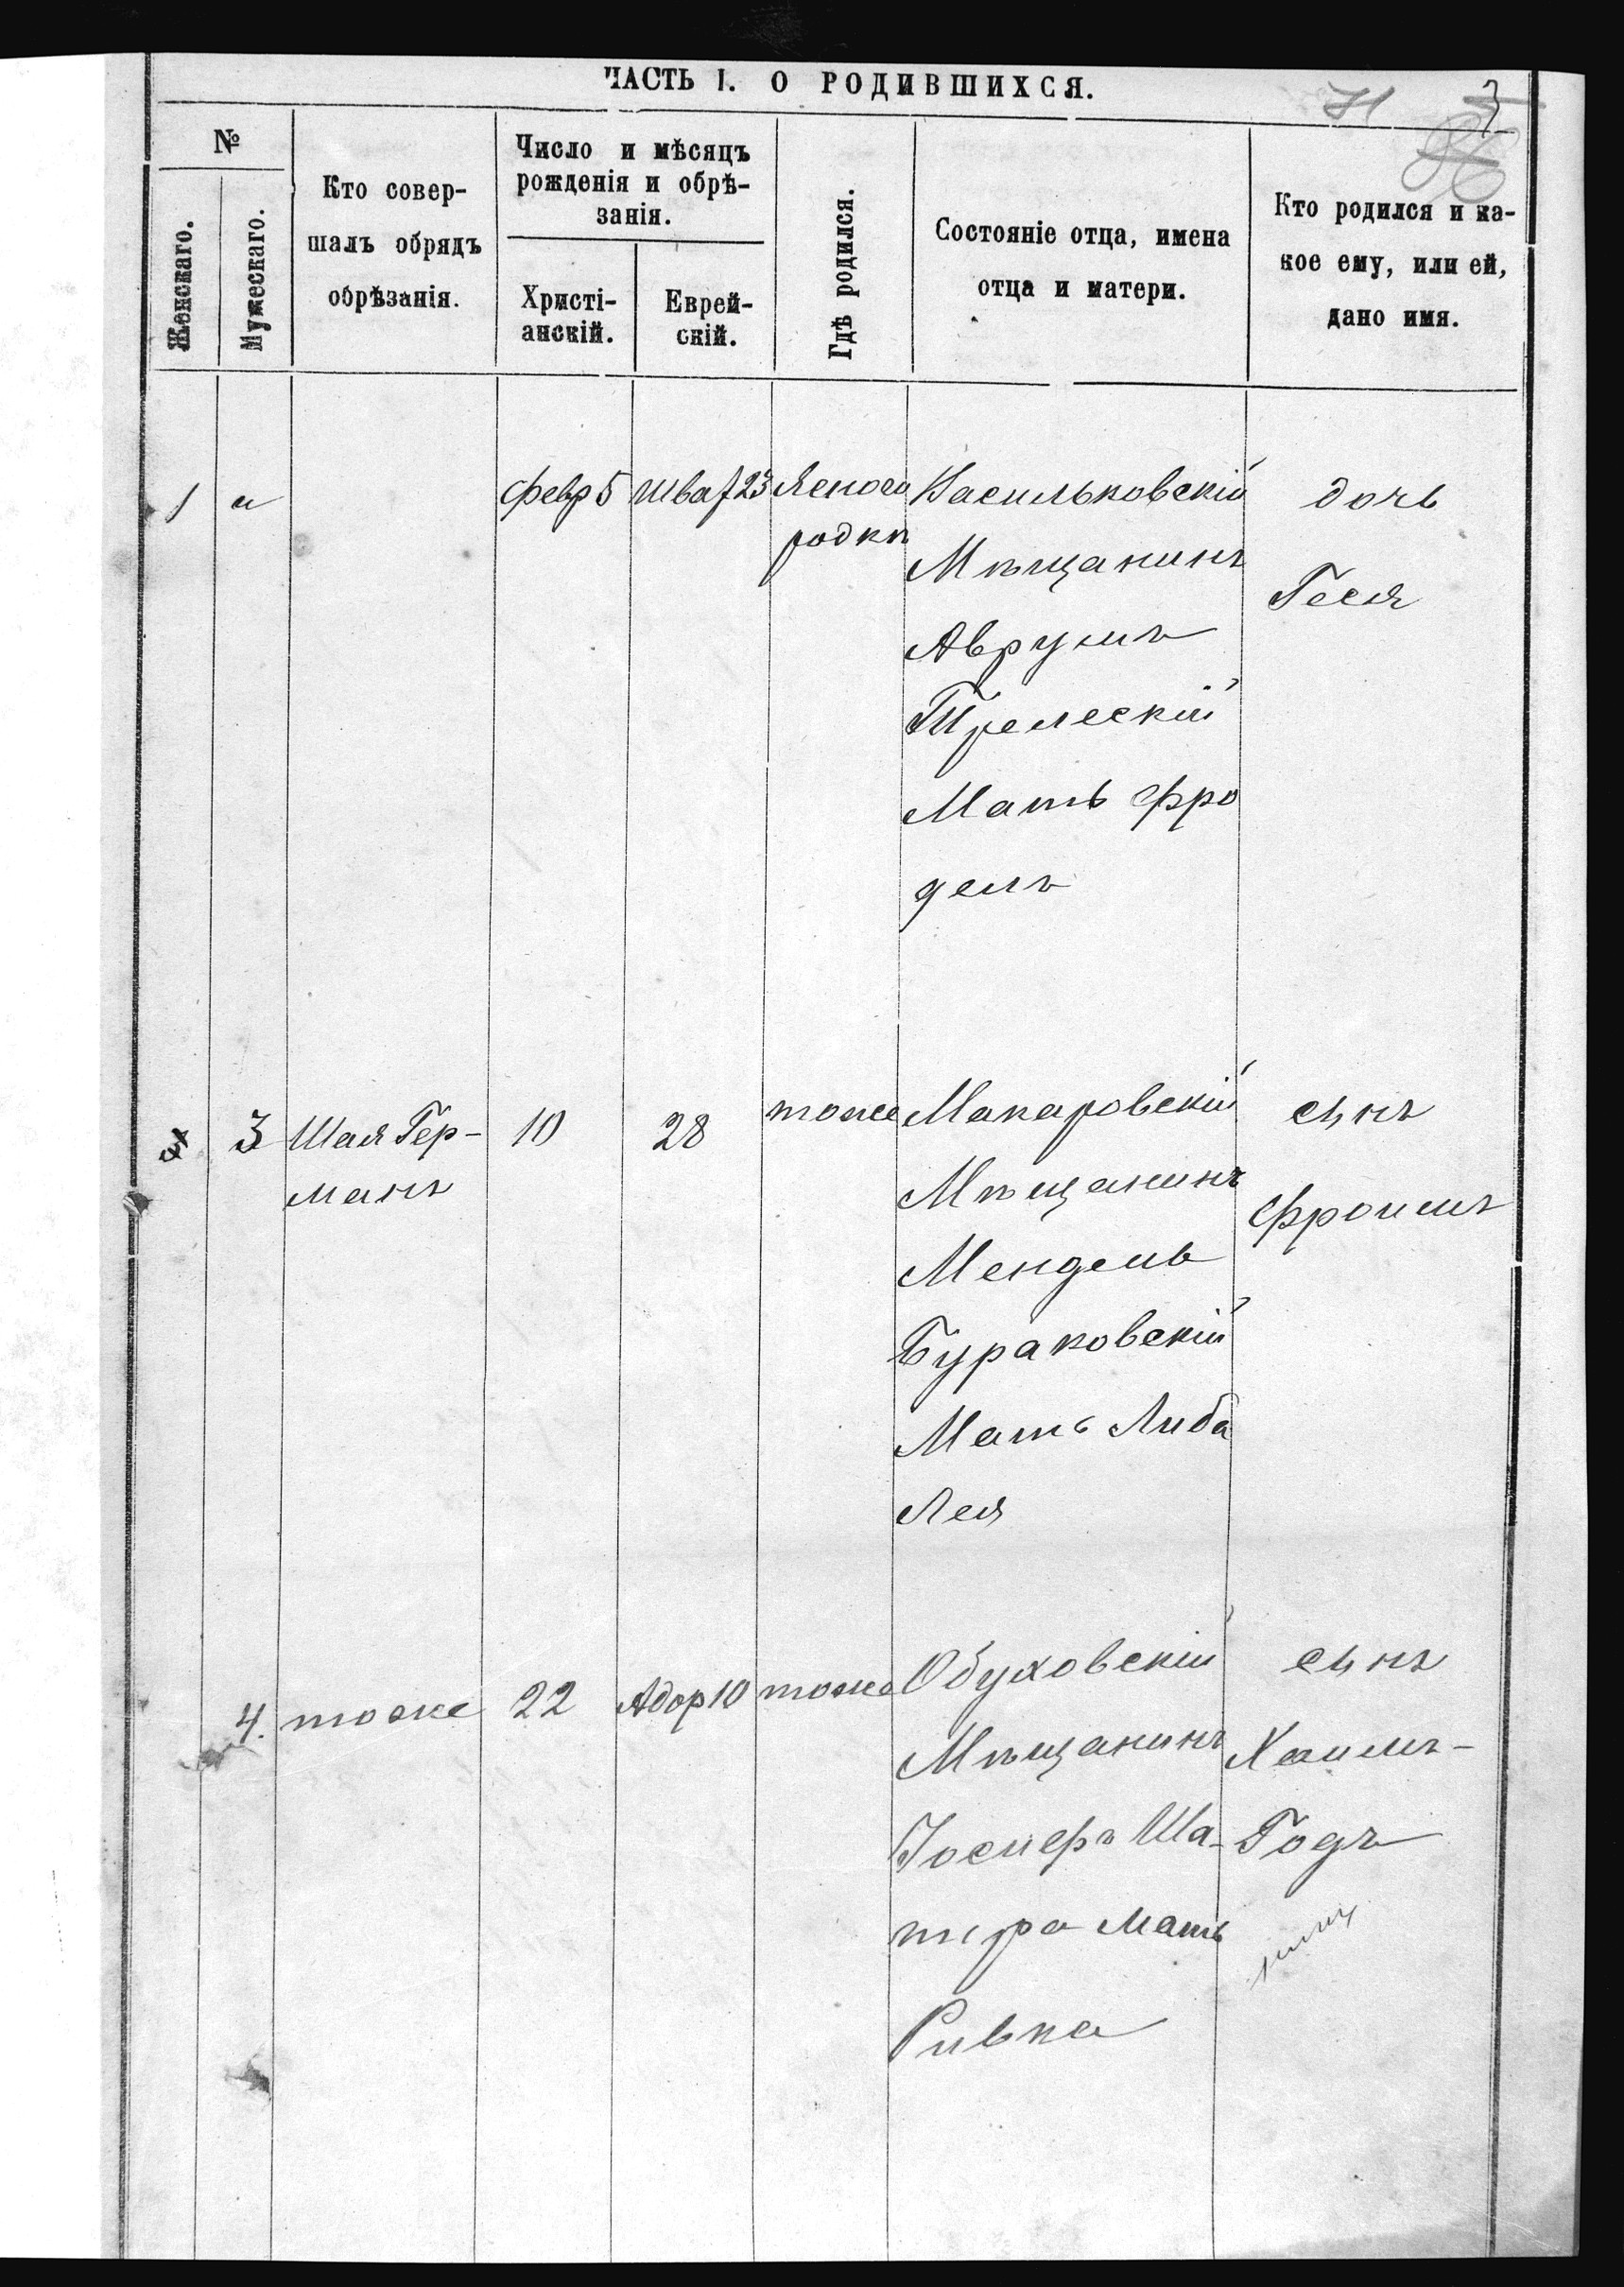 ЧАСТЬ I. О РОДИВШИХСЯ.
71
3
№
Женскаго.
Мужескаго.
Кто совер-
шалъ обрядъ
обрѣзанія.
Число и мѣсяцъ
рожденія и обрѣ-
занія.
Христі-
анскій.
Еврей-
скій.
Гдѣ родился.
Состояніе отца, имена
отца и матери.
Кто родился и ка-
кое ему, или ей,
дано имя.
1
Февр 5
Шват 23
Ясного
родкѣ
Васильковскій
Мѣщанинъ
Аврумъ
Трелескій
Мать Фро
делъ
дочь
Геся
3
Шая Гер-
манъ
10
28
тоже
Макаровскій
Мѣщанинъ
Мендель
Бураковскій
Мать Либа
Лея
сынъ
Фроимъ
4.
тоже
22
Адор 10
тоже
Обуховскій
Мѣщанинъ
Іосифъ Ша-
тира Мать
Ривка
сынъ
Хаимъ-
Годъ